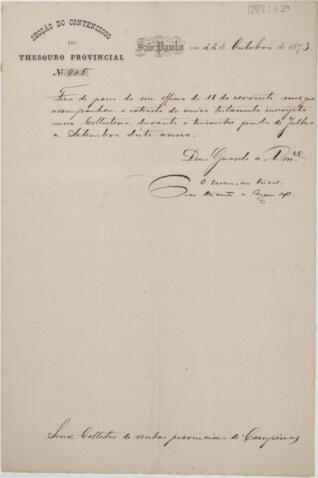 SECÇÃO DO CONTENCIOSO
DO
THESOURO PROVINCIAL
Nº 208
São Paulo em 22 de Outubro de 1873
Fico de posse de seu officio de 18 do corrente mez que
acompanhou o extracto do unico testamento inscripto
nessa Collectoria, durante o trimestre findo de Julho
a Setembro deste anno.
Deus Guarde a Vmce
O Procurador Fiscal
Senr Collector de rendas provinciaes de Campinas